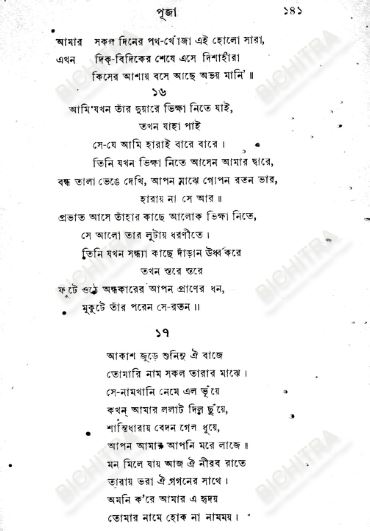 পূজা ১৪১
আমার সকল দিনের পথ-খোঁজা এই হোলো সারা,
এখন দিক্-বিদিকের শেষে এসে দিশাহারা
কিসের আশায় বসে আছে অভয় মানি' ॥
১৬
আমি যখন তাঁর দুয়ারে ভিক্ষা নিতে যাই,
তখন যাহা পাই
সে-যে আমি হারাই বারে বারে ।
তিনি যখন ভিক্ষা নিতে আসেন আমার দ্বারে,
বন্ধ তালা ভেঙে দেখি, আপন মাঝে গোপন রতন ভার,
হারায় না সে আর ॥
প্রভাত আসে তাঁহার কাছে আলোক ভিক্ষা নিতে,
সে আলো তার লুটায় ধরণীতে ।
তিনি যখন সন্ধ্যা কাছে দাঁড়ান ঊর্ধ্বকরে
তখন স্তরে স্তরে
ফুটে ওঠে অন্ধকারের আপন প্রাণের ধন,
মুকুটে তাঁর পরেন সে-রতন ॥
১৭
আকাশ জুড়ে শুনিনু ঐ বাজে
তোমারি নাম সকল তারার মাঝে ।
সে-নামখানি নেমে এল ভুঁয়ে
কখন্ আমার ললাট দিল ছুঁয়ে,
শান্তিধারায় বেদন গেল ধুয়ে,
আপন আমার আপনি মরে লাজে ॥
মন মিলে যায় আজ ঐ নীরব রাতে
তারায় ভরা ঐ গগনের সাথে ।
অমনি ক'রে আমার এ হৃদয়
তোমার নামে হোক না নামময় ।
BICHITRA